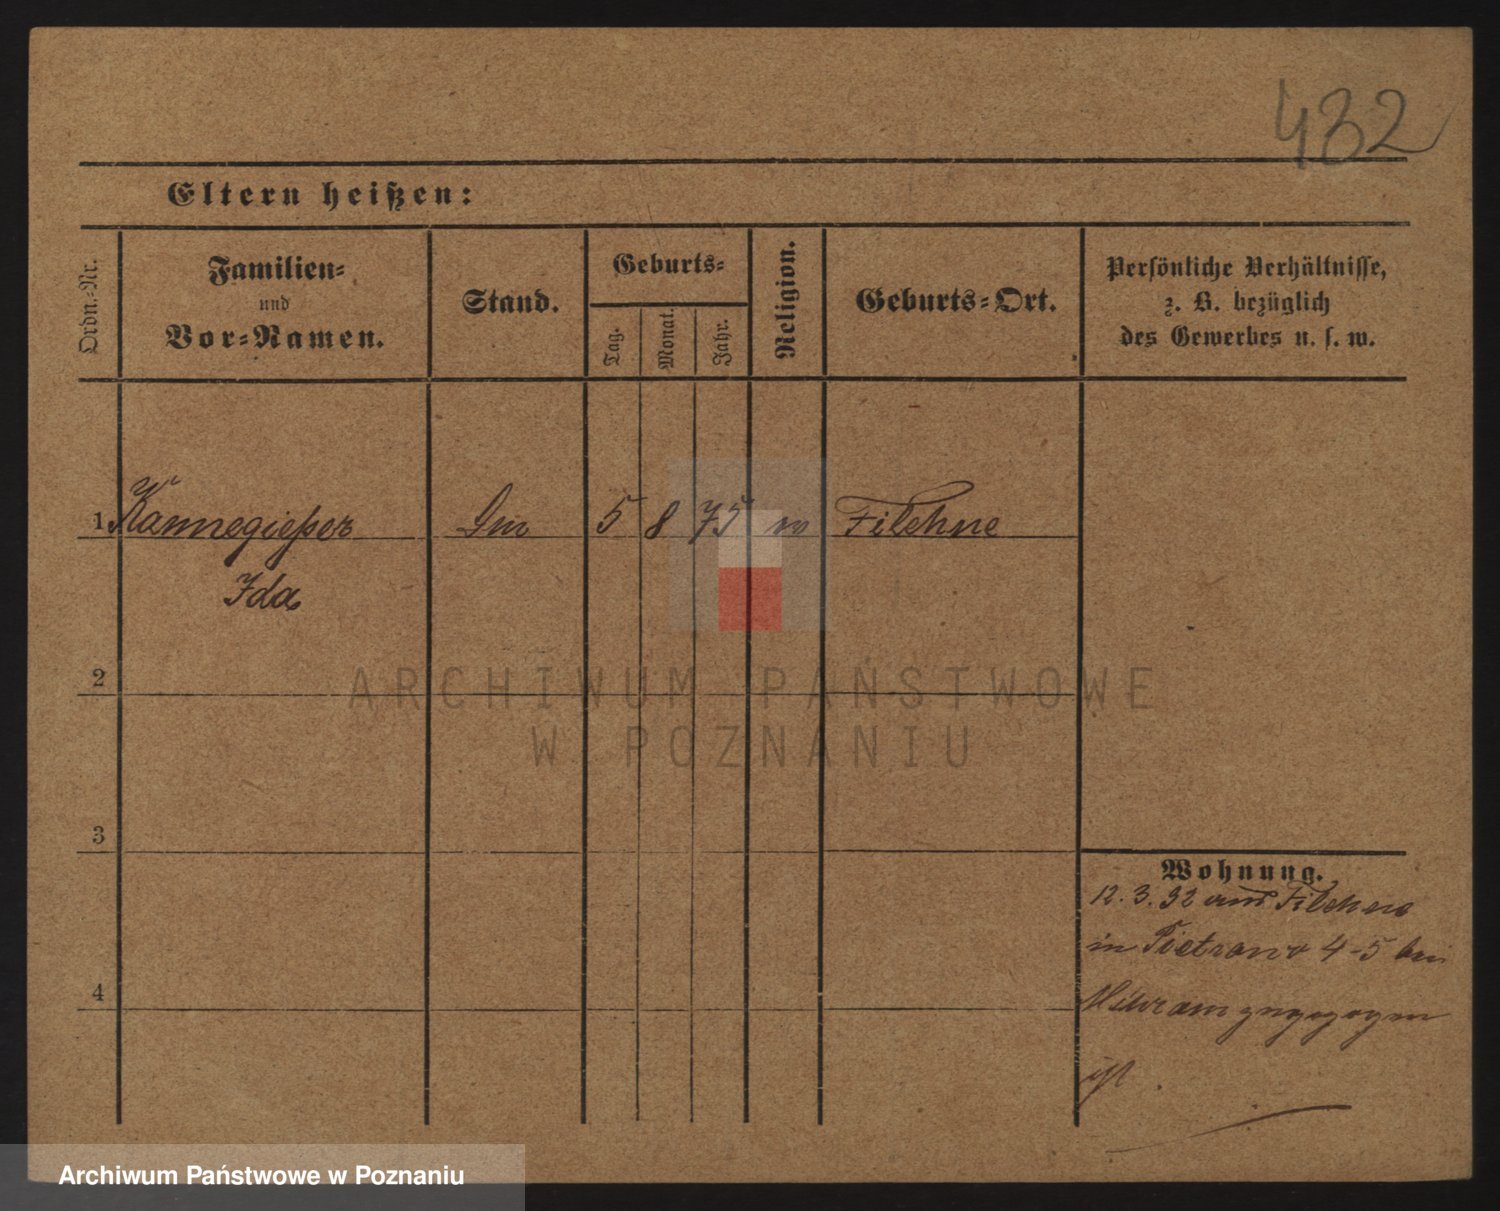 432
Eltern heißen:
Ordn.-Nr.
Familien-
und
Vor-Namen.
Stand.
Geburts-
Tag.
Monat.
Jahr.
Religion.
Geburts-Ort.
Persönliche Verhältnisse,
z. B. bezüglich
des Gewerbes u. s. w.
1 Kannegießer 5 8 75 Filehne
Ida
2
3
4
Wohnung.
12. 3. 92 aus Filehne
in 4-5 bei
zugezogen
ist.
ARCHIWUM PAŃSTWOWE
W POZNANIU
Archiwum Państwowe w Poznaniu